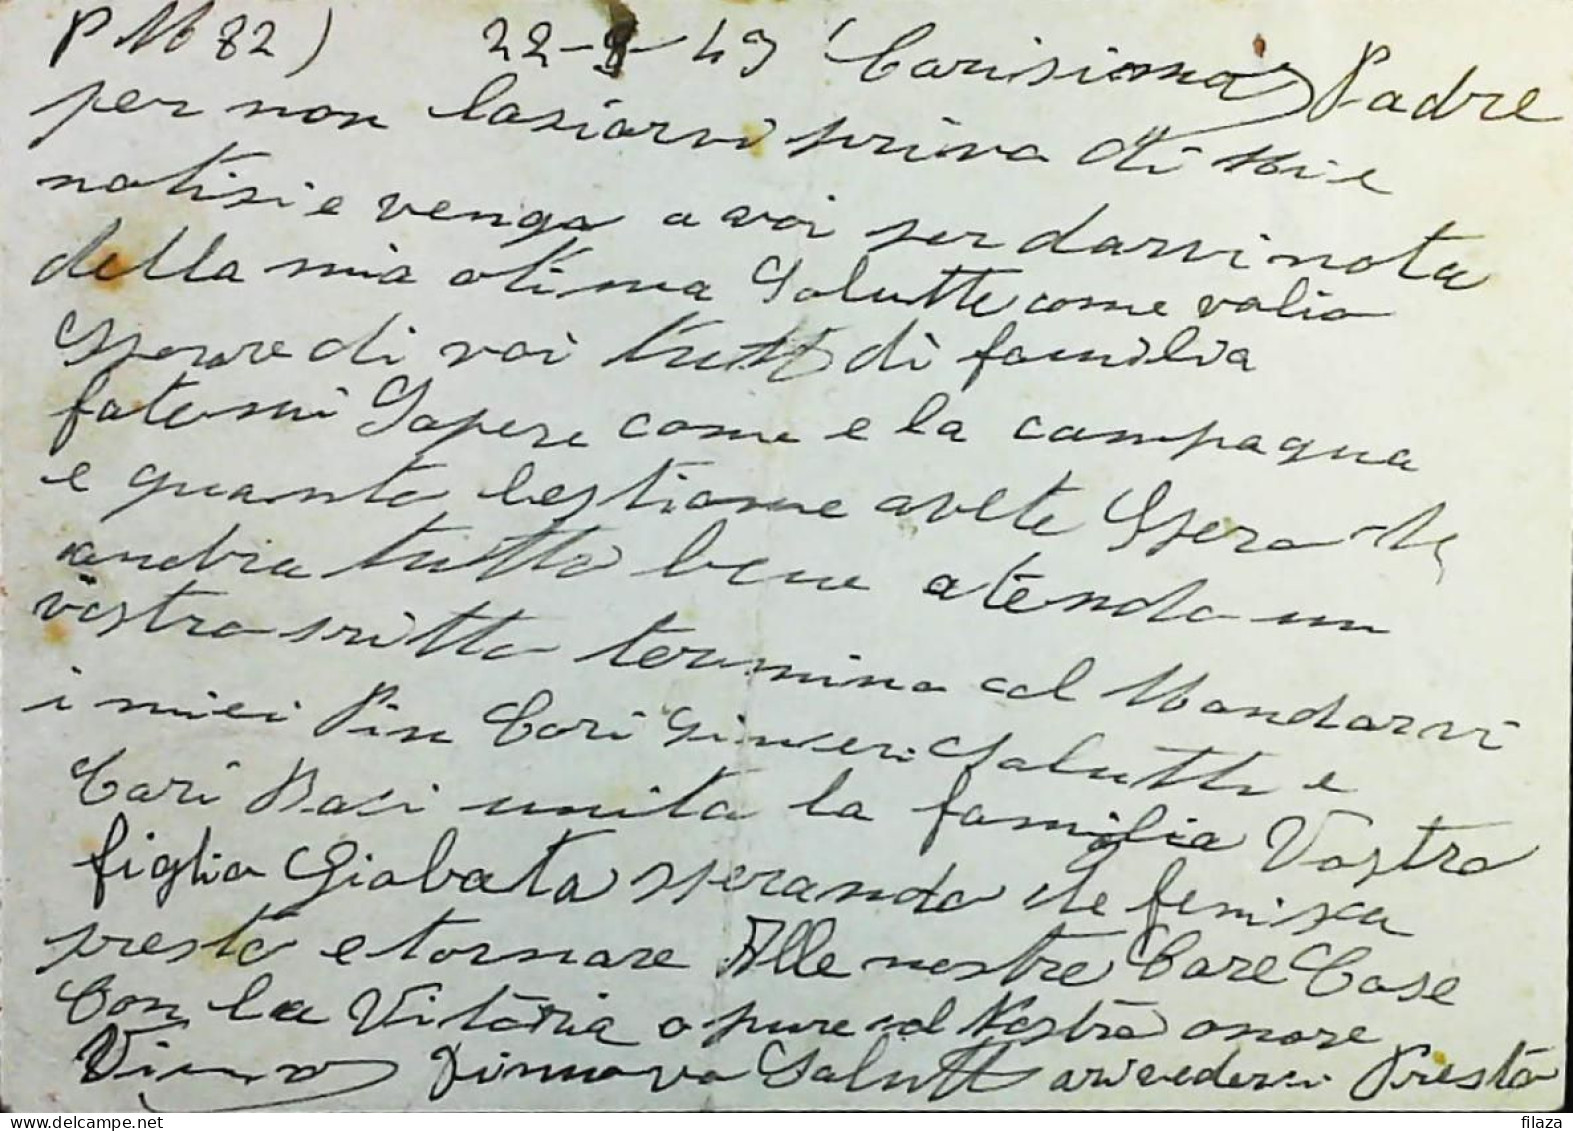 P M 82) 22-8-43 Carisimo Padre
per non lasiarvi privo di Mie
notisi e vengo a voi per darvi nota
della mia otima Salutte come volio
Sperare di voi tutti di familia
fatemi Sapere come e la campagna
e quanto bestiame avete Spero che
andra tutto bene atendo un
vostro sritto termino col Mandarvi
i miei Piu Cari Sinceri Salutti e
Cari Basi unita la familia Vostro
figlio Giobata sperando che fenisca
presto e tornare Alle nostre Care Case
Con la Vitoria o pure col Nostro onore
Vinno Rinnovo Salutti arivederci Presto
filaza
www.delcampe.net